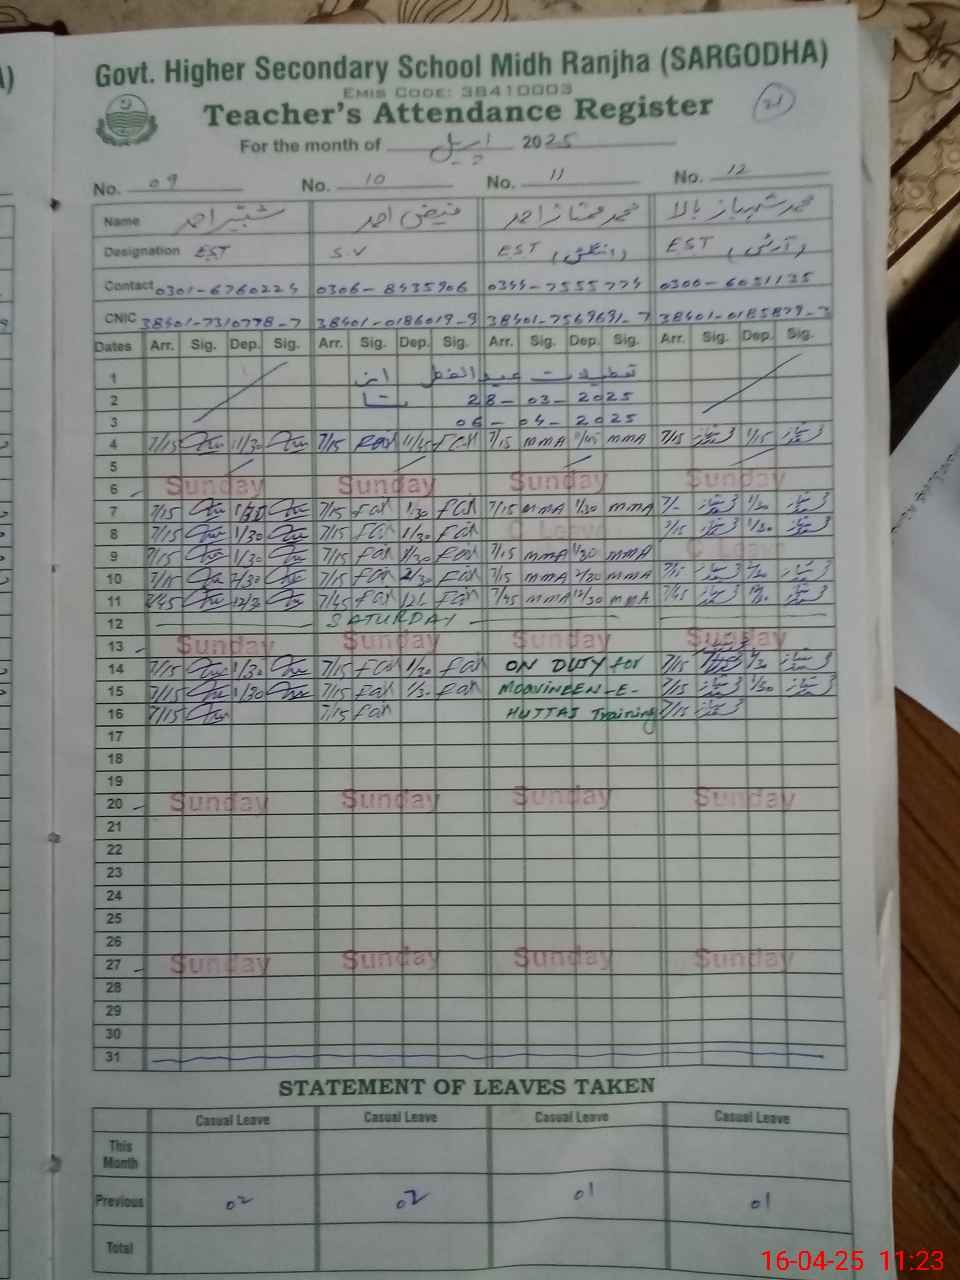 Govt. Higher Secondary School Midh Ranjha (SARGODHA)
EMIS CODE: 38410003
Teacher's Attendance Register
21
For the month of اپریل 2025
No. 09 No. 10 No. 11 No. 12
Name شبیر احمد فیض احمد محمد ممتاز احمد محمد شہباز بالا
Designation EST S.V EST (انگلش) EST
Contact 0301-6760224 0306-8435906 0344-7555774 0306-6051135
CNIC 38401-7310778-7 38401-0186019-9 38401-7569691-7 38401-0185879-3
Dates Arr. Sig. Dep. Sig. Arr. Sig. Dep. Sig. Arr. Sig. Dep. Sig. Arr. Sig. Dep. Sig.
1 تعطیلات عید الفطر از
2 28-03-2025 تا
3 06-04-2025
4 7/15 11/30 7/15 11/45 7/15 MMA 11/45 MMA 7/15 11/15
5
6 Sunday Sunday Sunday Sunday
7 7/15 1/30 7/15 Fai 1/30 Fai 7/15 MMA 1/30 MMA 7/- 1/30
8 7/15 1/30 7/15 Fai 1/30 Fai C Leave 7/15 1/30
9 7/15 1/30 7/15 Fai 1/30 Fai 7/15 MMA 1/30 MMA C Leave
10 7/15 2/30 7/15 Fai 2/30 Fai 7/15 MMA 2/30 MMA 7/15 2/30
11 7/45 12/30 7/45 Fai 12/ Fai 7/45 MMA 12/30 MMA 7/45
12 SATURDAY
13 Sunday Sunday Sunday Sunday
14 7/15 1/30 7/15 Fai 1/30 Fai ON DUTY for 7/15 1/30
15 7/15 1/30 7/15 Fai 1/30 Fai MOAVINEEN-E- 7/15 1/30
16 7/15 7/15 Fai HUJJAJ Training 7/15
17
18
19
20 Sunday Sunday Sunday Sunday
21
22
23
24
25
26
27 Sunday Sunday Sunday Sunday
28
29
30
31
STATEMENT OF LEAVES TAKEN
Casual Leave Casual Leave Casual Leave Casual Leave
This Month
Previous 02 02 01 01
Total
16-04-25 11:23